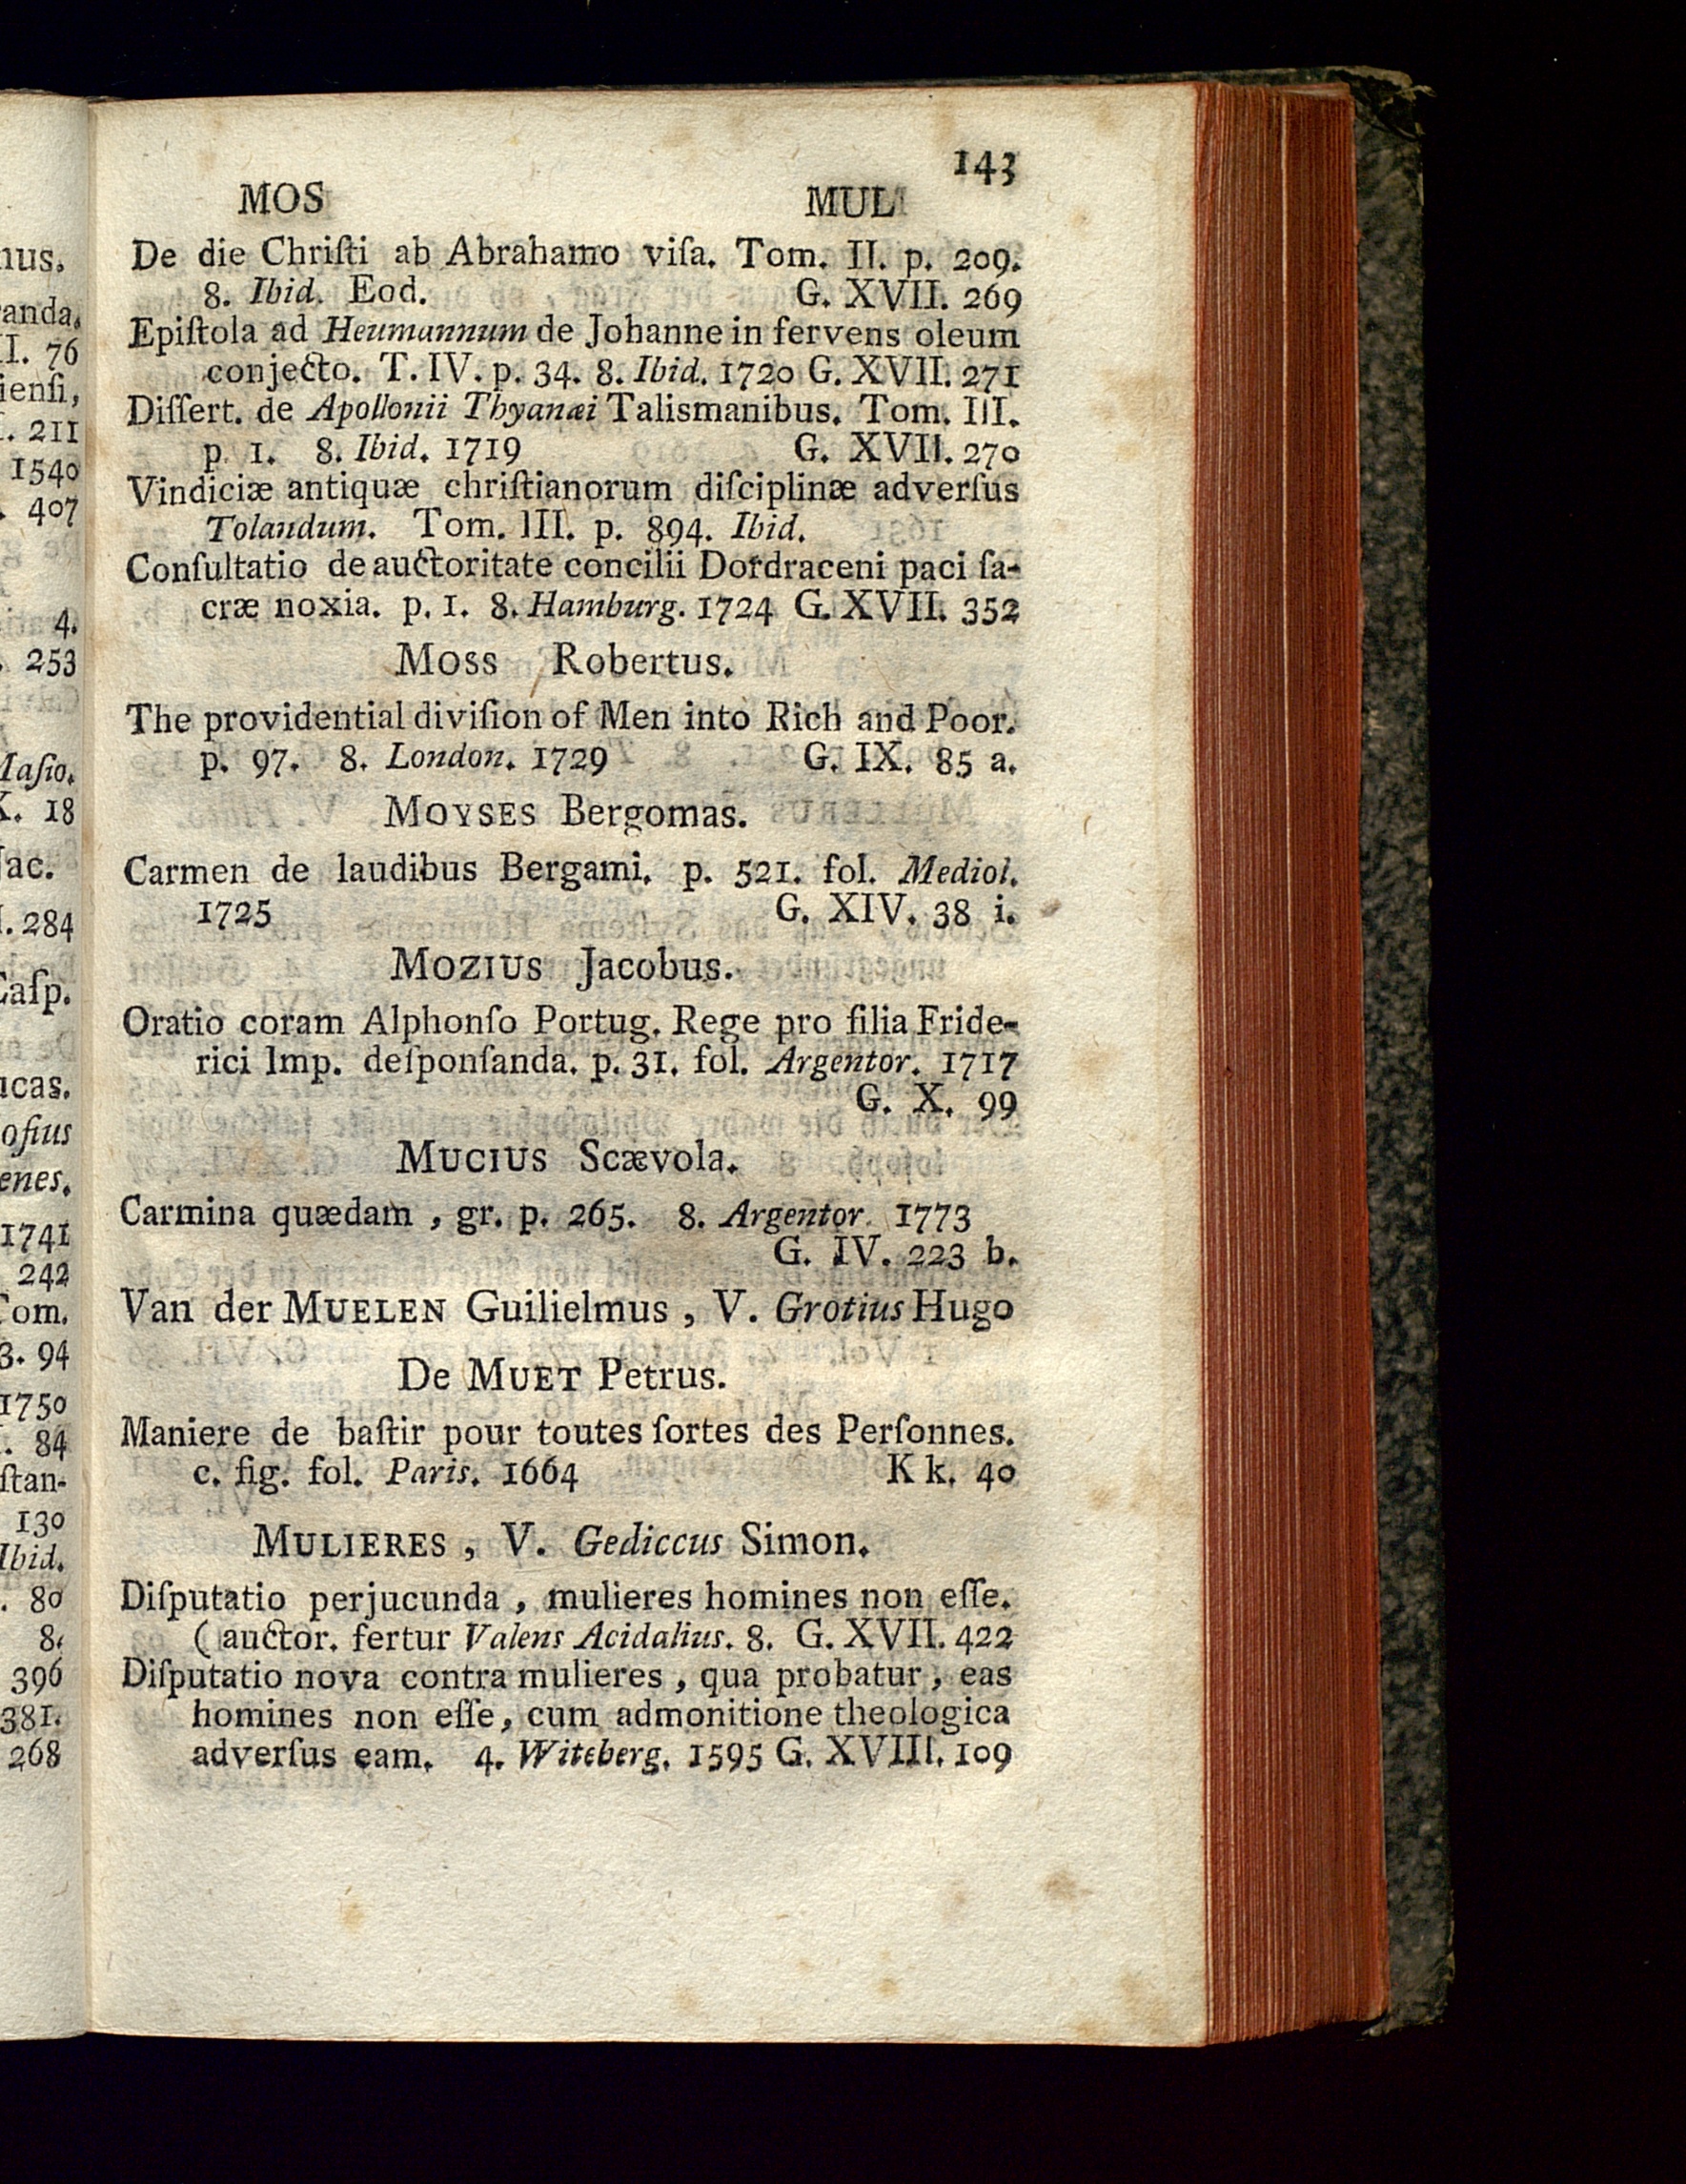 143
MOS MUL
De die Chriſti ab Abrahamo viſa. Tom. II. p. 209.
8. Ibid. Eod. G. XVII. 269
Epiſtola ad Heumannum de Johanne in fervens oleum
conjecto. T. IV. p. 34. 8. Ibid. 1720 G. XVII. 271
Diſſert. de Apollonii Thyanæi Talismanibus. Tom. III.
p. 1. 8. Ibid. 1719 G. XVII. 270
Vindiciæ antiquæ chriſtianorum diſciplinæ adverſus
Tolandum. Tom. III. p. 894. Ibid.
Conſultatio de auctoritate concilii Dordraceni paci ſa-
cræ noxia. p. 1. 8. Hamburg. 1724 G. XVII. 352
MOSS Robertus.
The providential diviſion of Men into Rich and Poor.
p. 97. 8. London. 1729 G. IX. 85 a.
MOYSES Bergomas.
Carmen de laudibus Bergami. p. 521. fol. Mediol.
1725 G. XIV. 38 i.
MOZIUS Jacobus.
Oratio coram Alphonſo Portug. Rege pro filia Fride-
rici Imp. deſponſanda. p. 31. fol. Argentor. 1717
G. X. 99
MUCIUS Scævola.
Carmina quædam, gr. p. 265. 8. Argentor. 1773
G. IV. 223 b.
Van der MUELEN Guilielmus, V. Grotius Hugo
De MUET Petrus.
Maniere de baſtir pour toutes ſortes des Perſonnes.
c. fig. fol. Paris. 1664 K k. 40
MULIERES, V. Gediccus Simon.
Diſputatio perjucunda, mulieres homines non eſſe.
(auctor. fertur Valens Acidalius. 8. G. XVII. 422
Diſputatio nova contra mulieres, qua probatur, eas
homines non eſſe, cum admonitione theologica
adverſus eam. 4. Witeberg. 1595 G. XVIII. 109